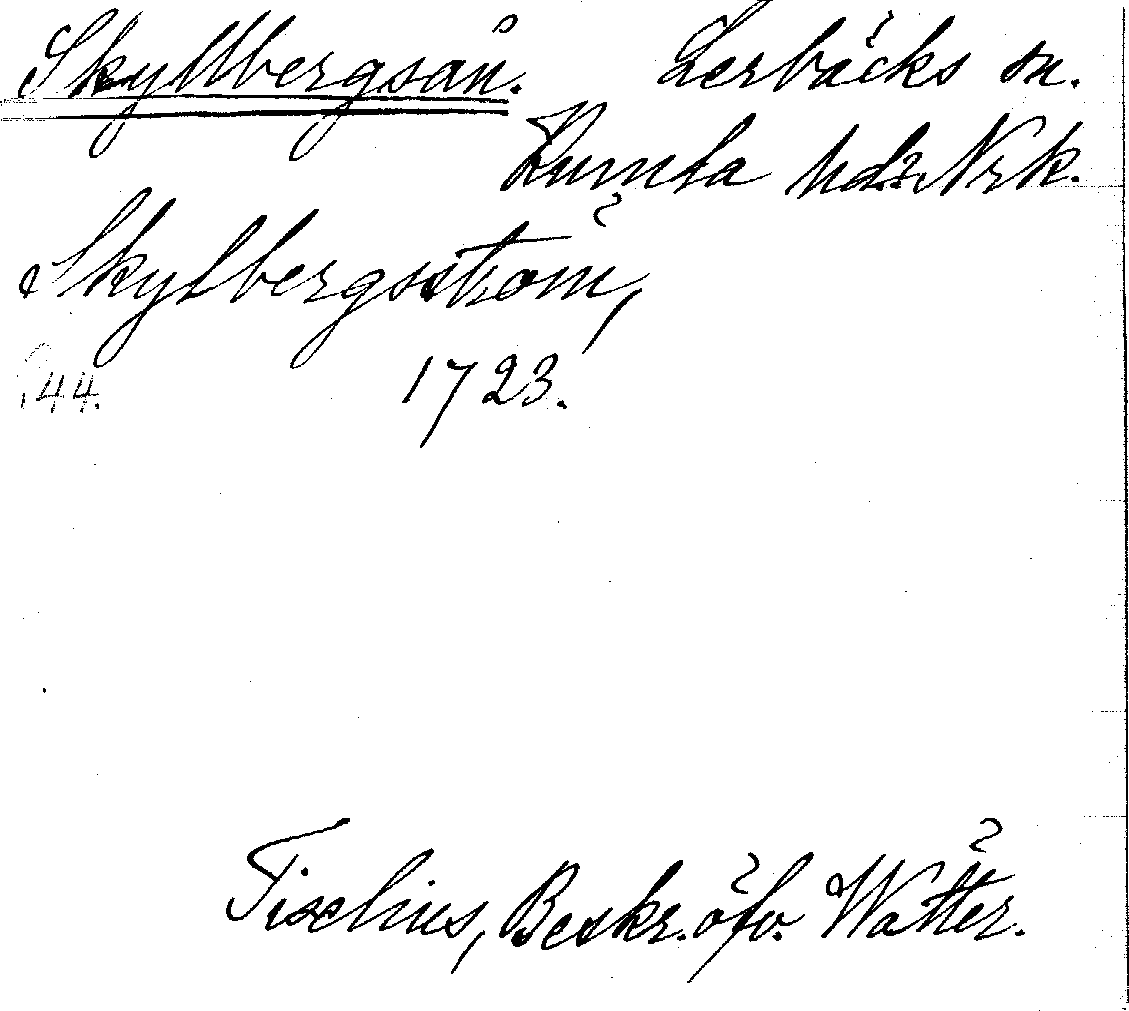 Skyllbergsån. Lerbäcks sn.
Kumla hd. Nrk.
Skylbergsström,
44. 1723.
Tiselius, Beskr. öfv. Wätter.